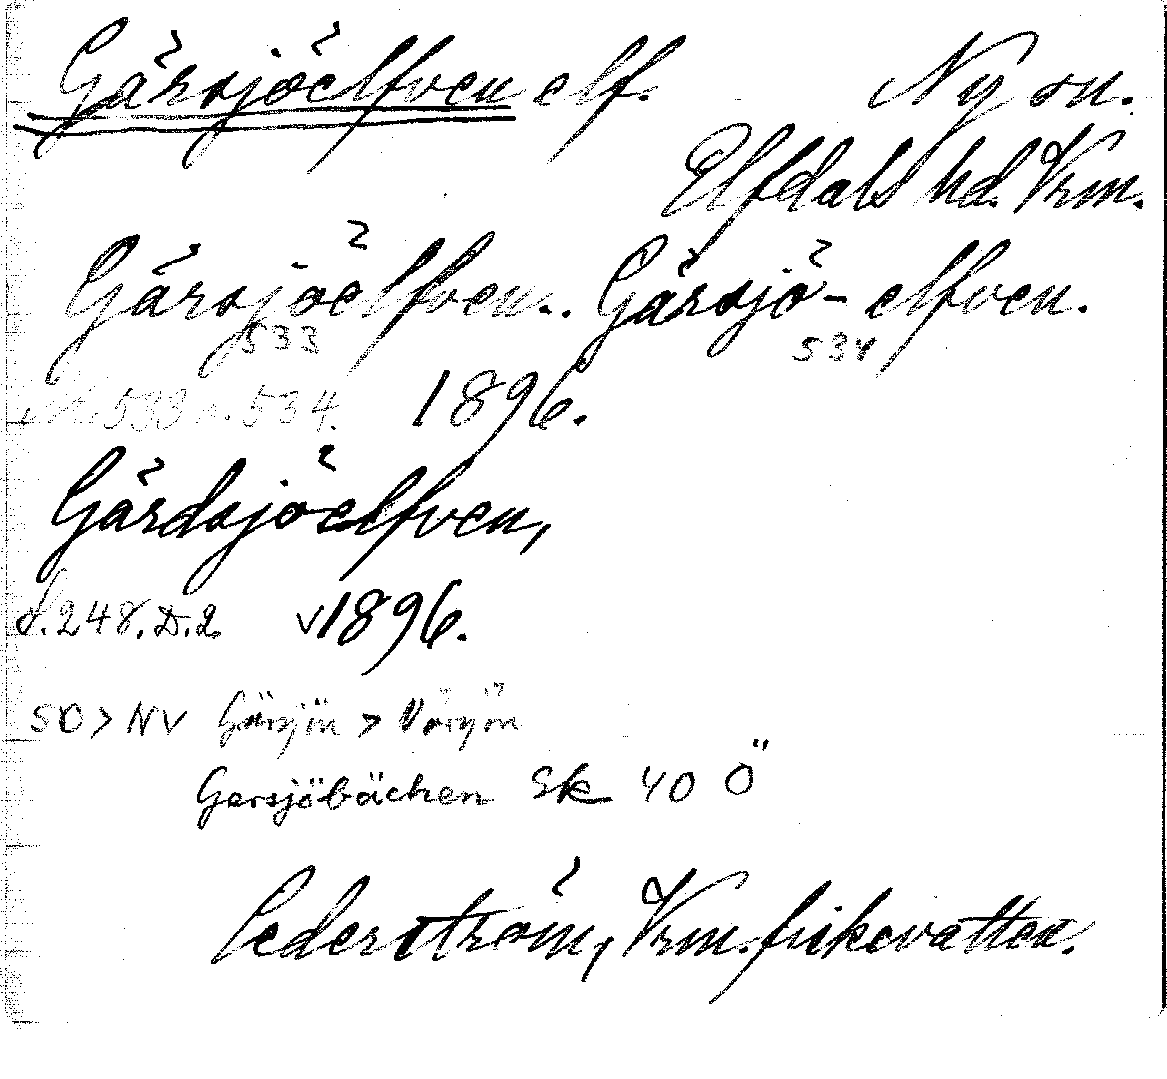 Gärsjöelfven elf. Ny sn.
Elfdals hd. Vrm.
Gärsjöelfven.. Gärsjö-elfven.
533 534
533 o. 534. 1896.
Gärdsjöelfven,
S. 248. D. 2 √1896.
SO > NV Gärsjön >
Gersjöbäcken Sk 40 Ö
Cederström, Vrm. fiskevatten.